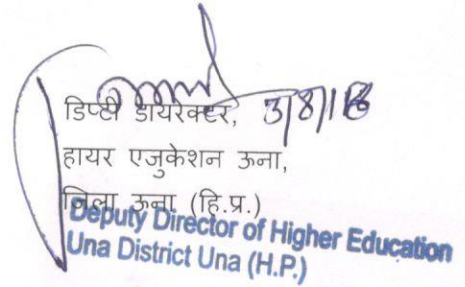 डिप्टी डायरेक्टर, 3/8/18
हायर एजुकेशन ऊना,
जिला ऊना (हि.प्र.)
Deputy Director of Higher Education
Una District Una (H.P.)